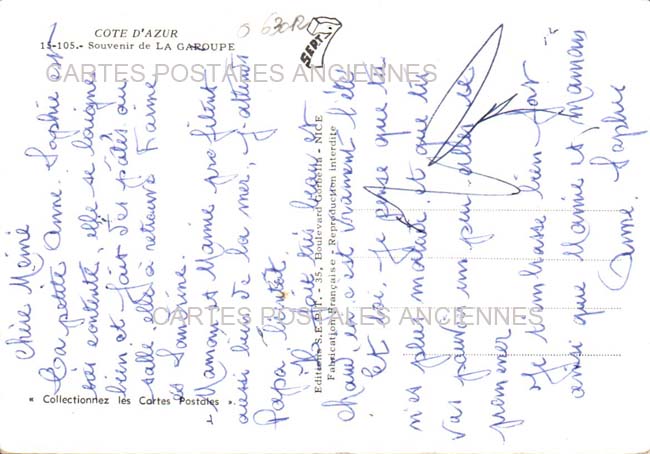 COTE D'AZUR
13-105.- Souvenir de LA GAROUPE
SEPT
CARTES POSTALES ANCIENNES
Chère Mémé
Ta petite Anne. Sophie est
très contente, elle se baigne
bien et fait des pâtés au
sable elle a retrouvé
et Sandrine.
Maman et Mamie profitent
aussi bien de la mer, j'attends
Papa bientôt.
Il fait très beau et
chaud ici c'est vraiment l'été
Et toi, je pense que tu
n'es plus malade et que tu
vas pouvoir un peu aller te
promener
Je t'embrasse bien fort
ainsi que Mamie et Maman
Anne. Sophie
Editions S.E.P.T. - 35, Boulevard Gorbella - NICE
Fabrication Française - Reproduction interdite
CARTES POSTALES ANCIENNES
« Collectionnez les Cartes Postales ».